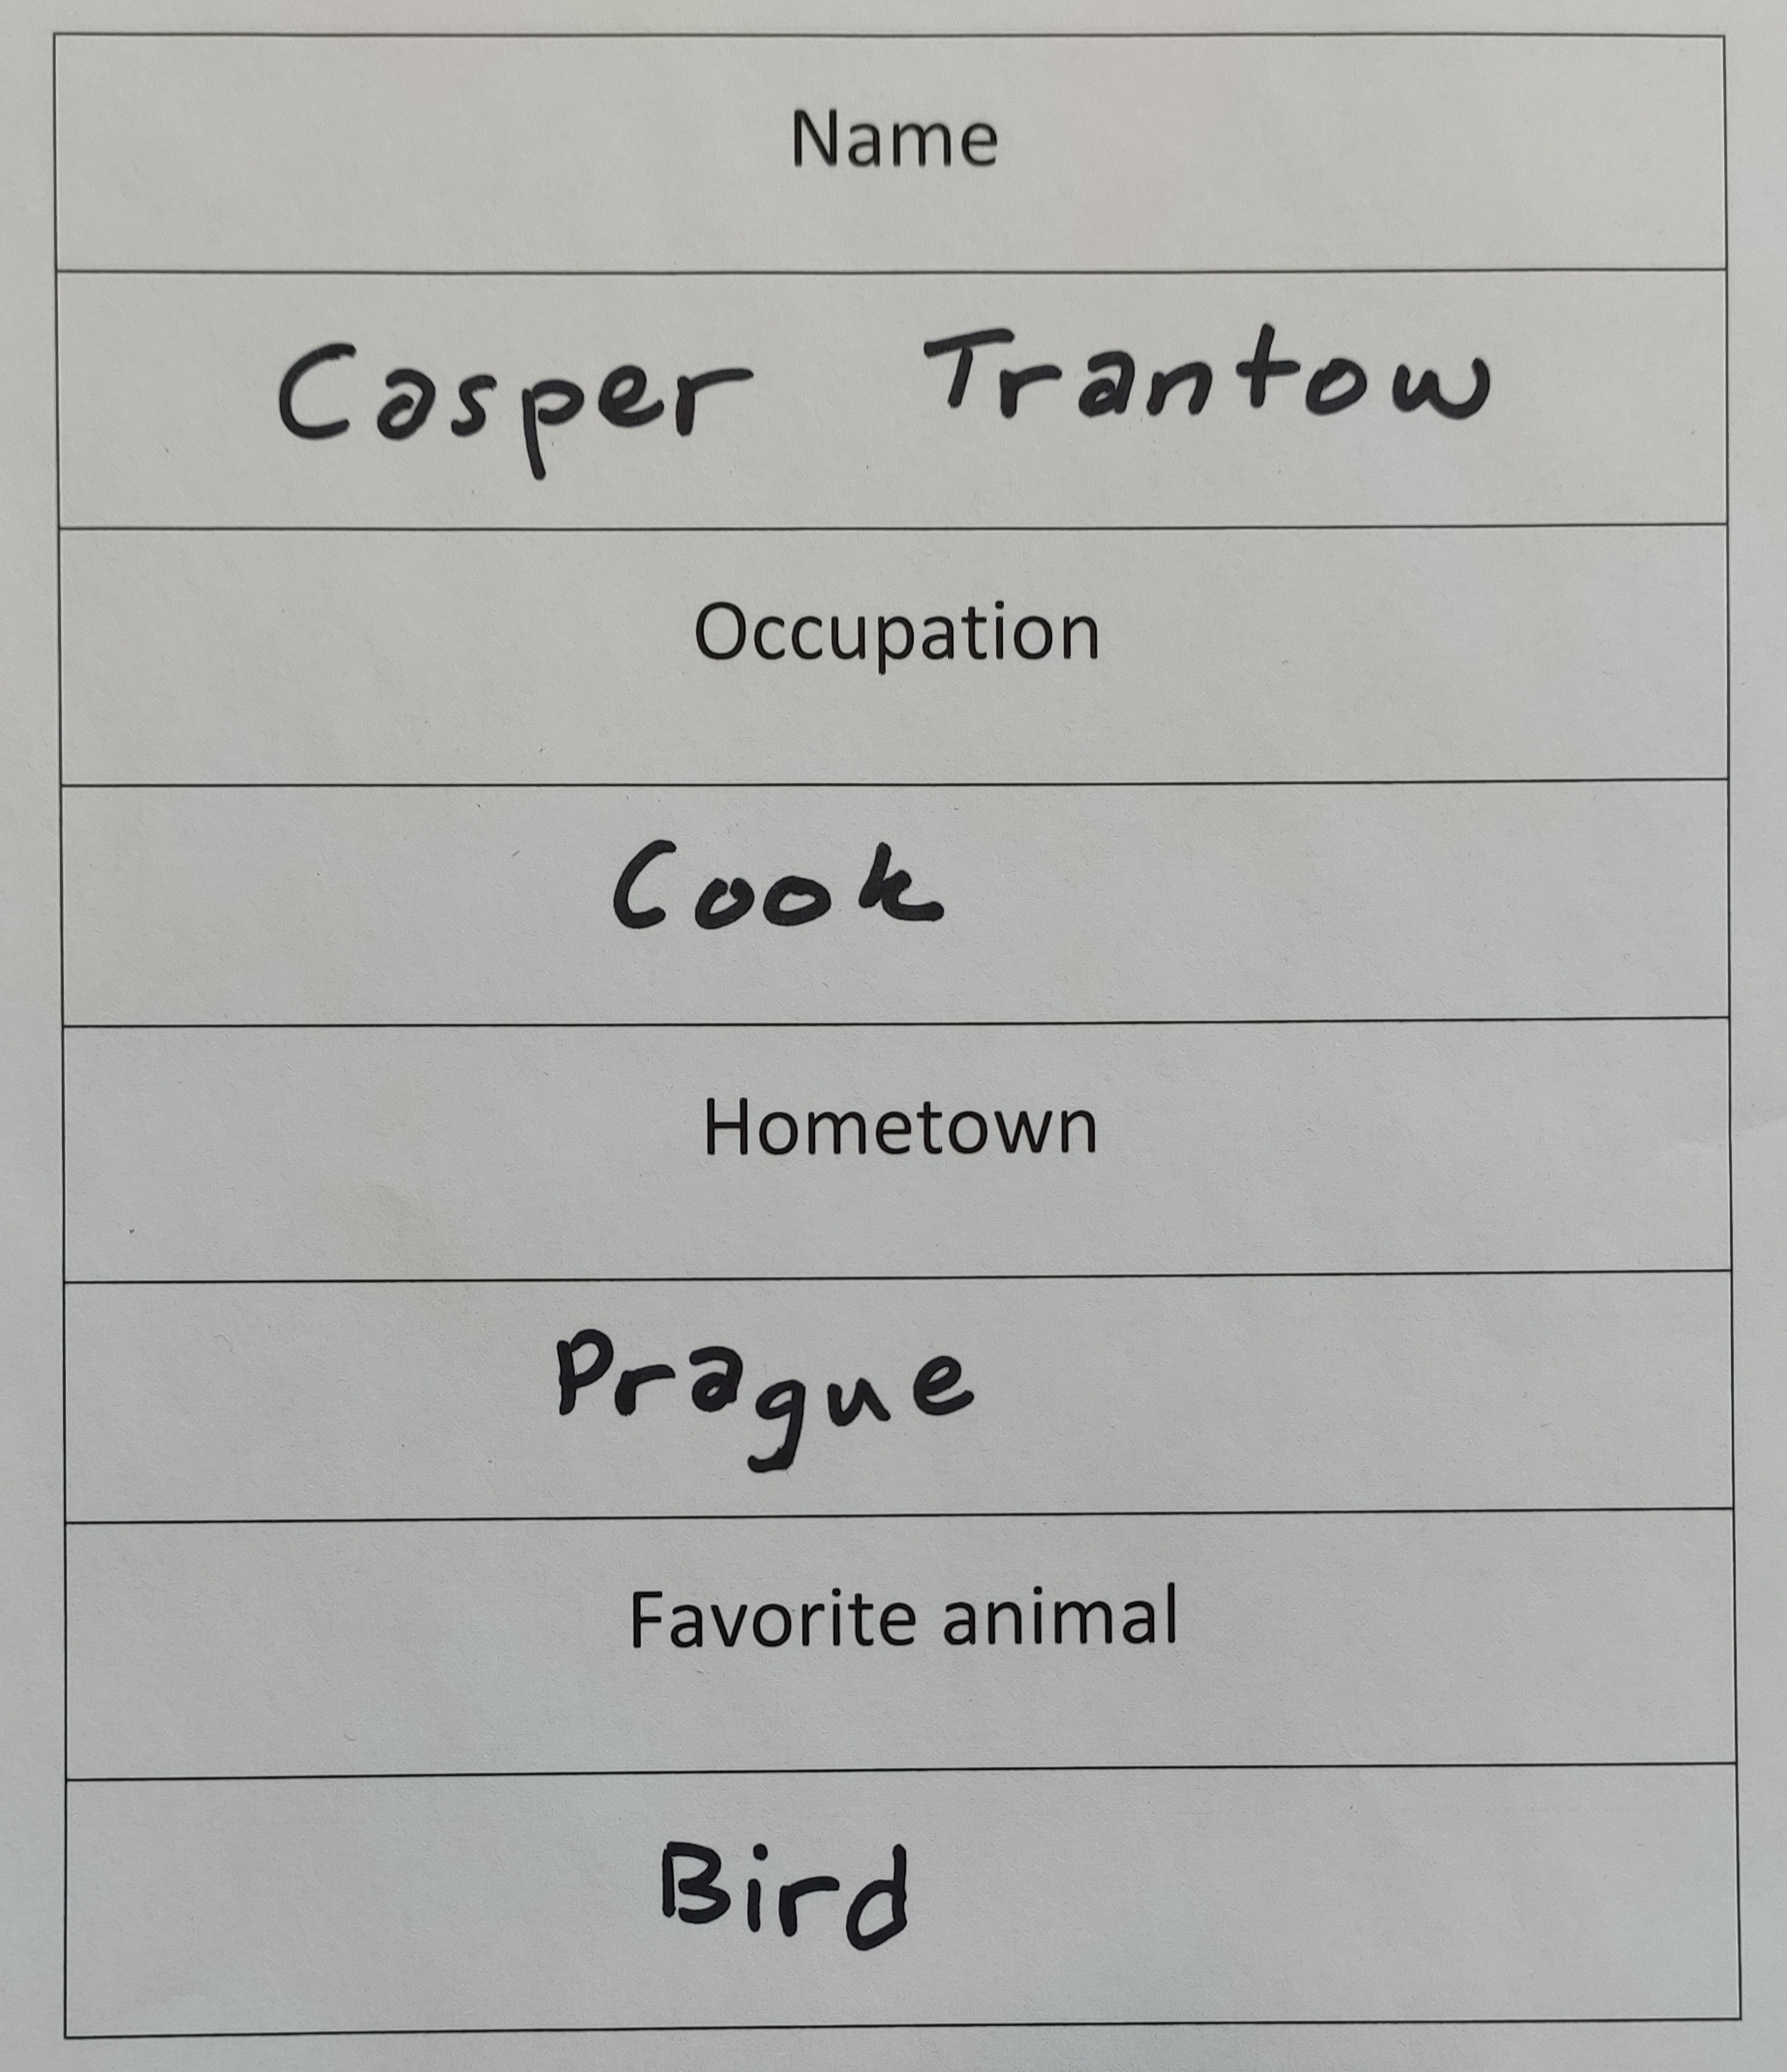 Name
Casper Trantow
Occupation
Cook
Hometown
Prague
Favorite animal
Bird